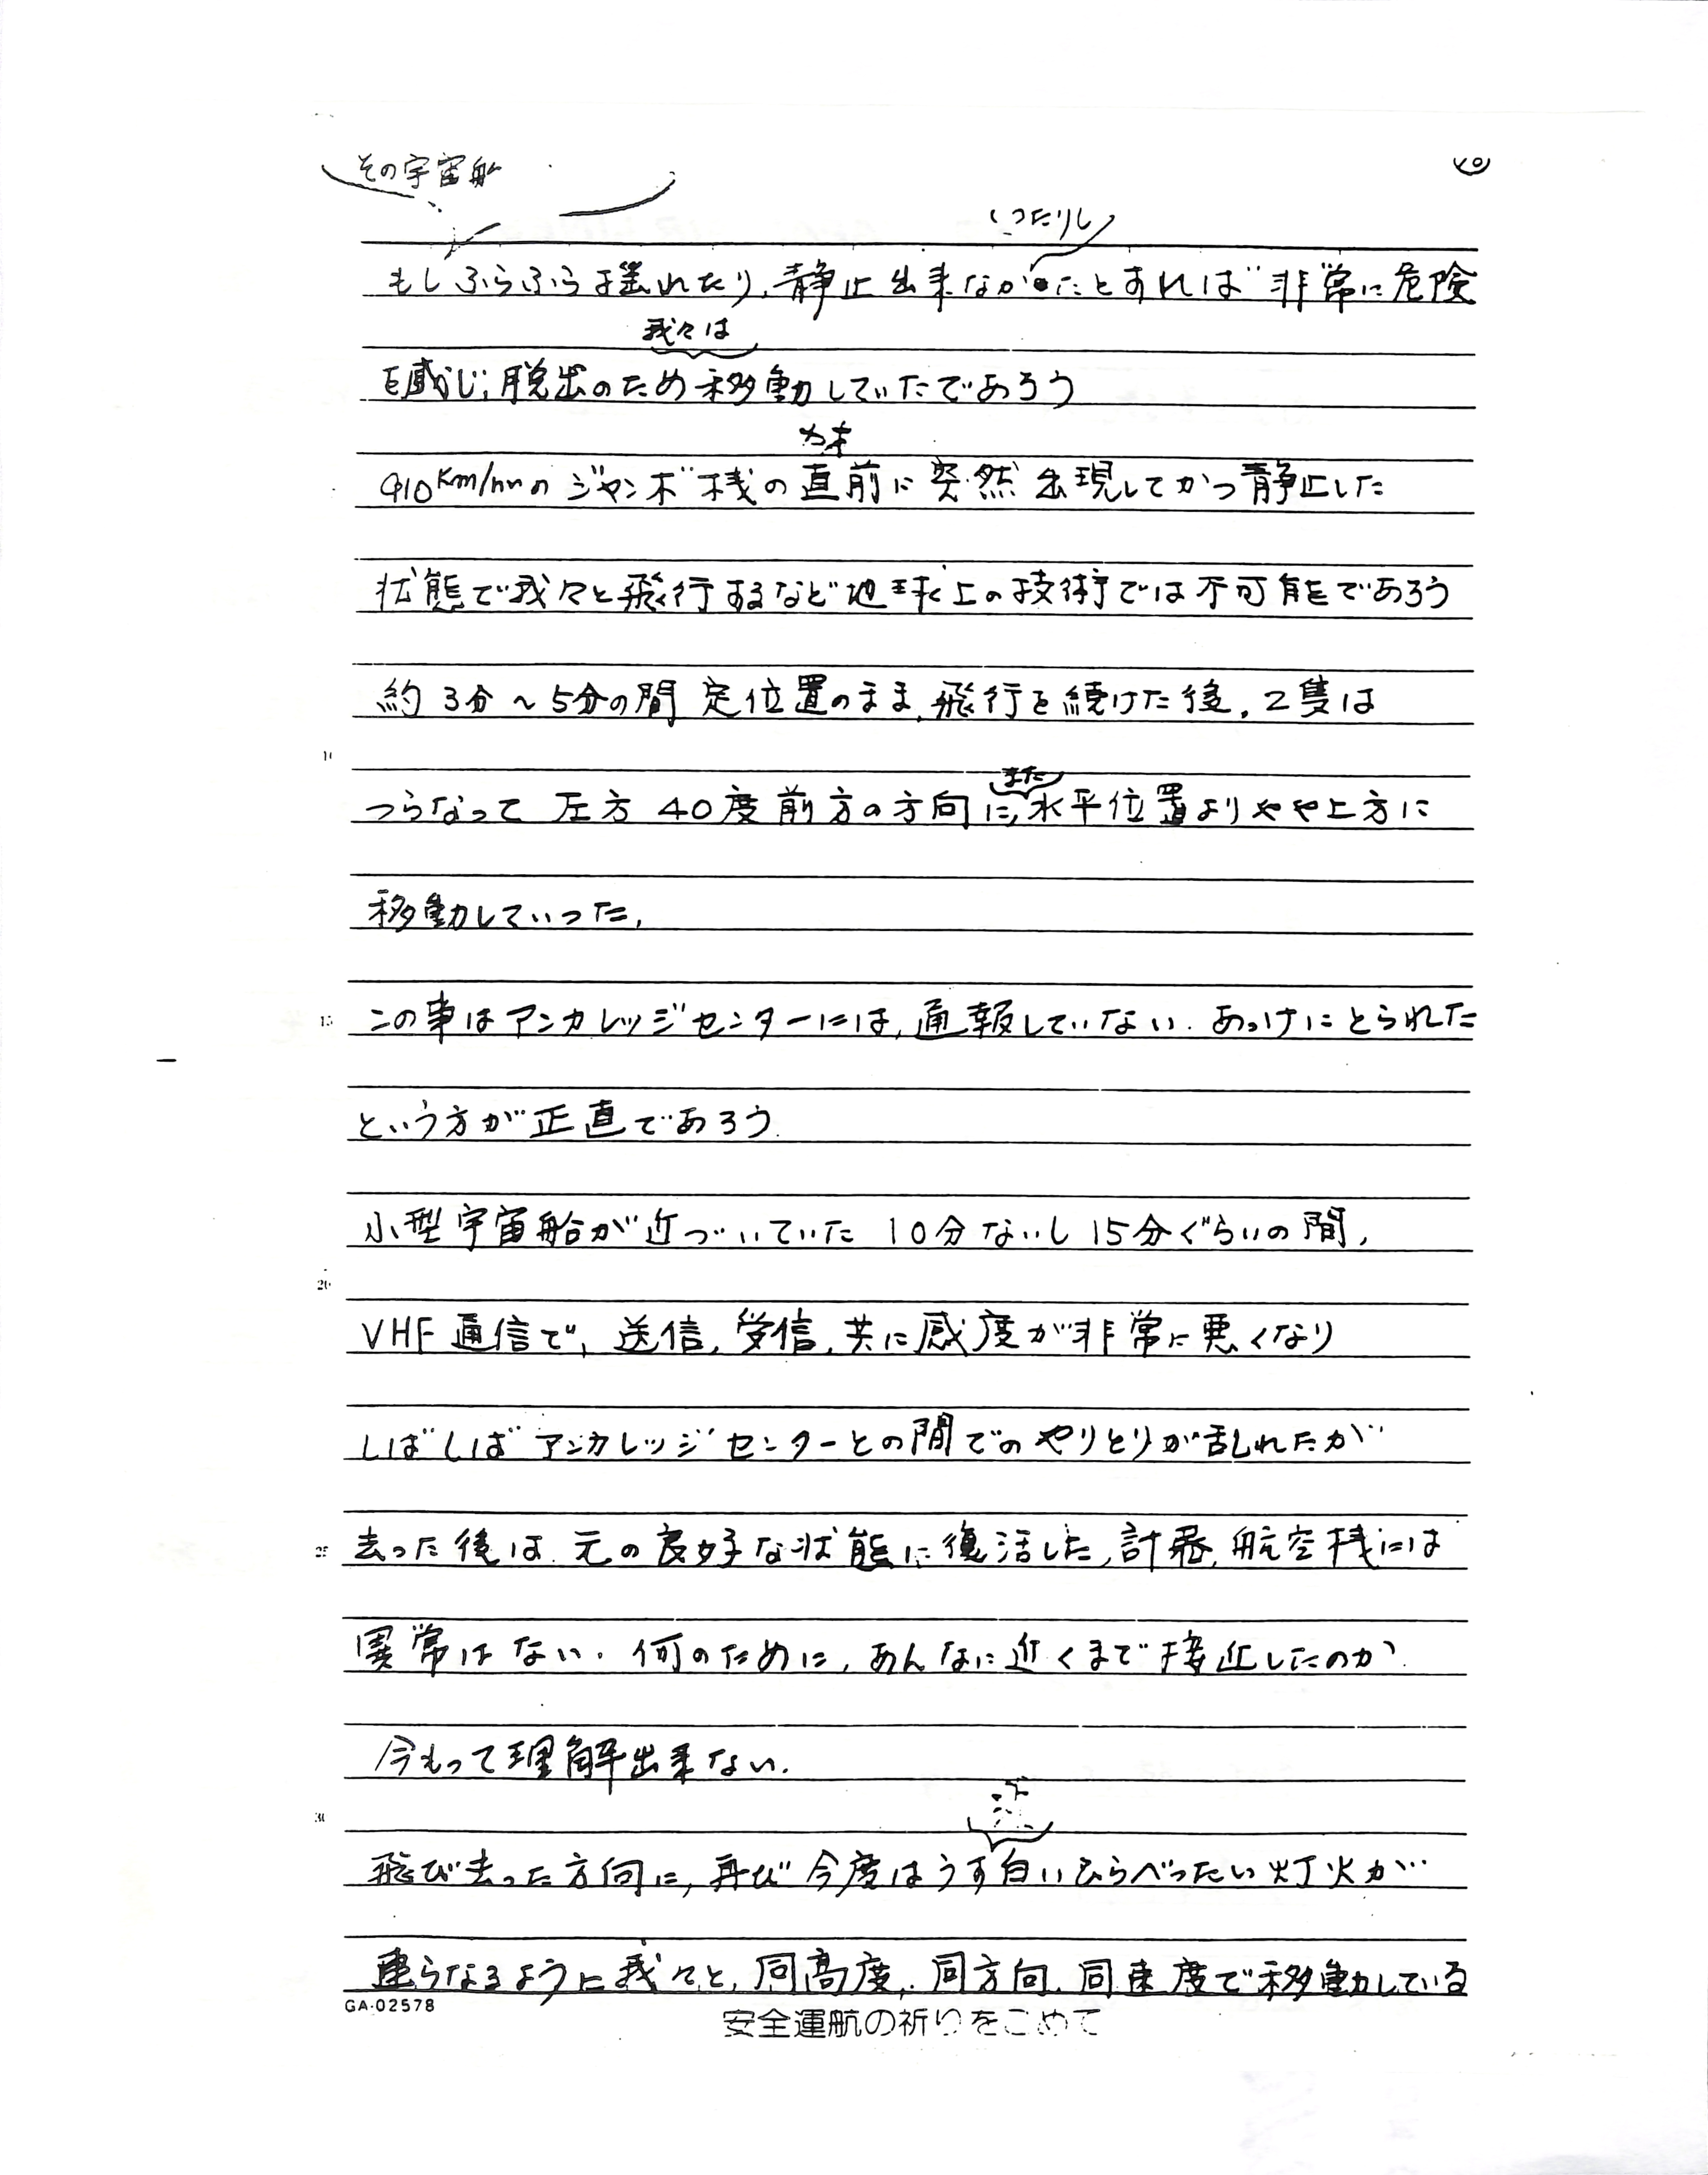 その宇宙船
いったりし
もしふらふら揺れたり、静止出来なかったとすれば非常に危険
我々は
を感じ、脱出のため移動していたであろう
910Km/hrのジャンボ機の直前に突然出現してかつ静止した
状態で我々と飛行するなど地球上の技術では不可能であろう
約3分〜5分の間 定位置のまま、飛行を続けた後、2隻は
10
また
つらなって 左方 40度前方の方向に、水平位置よりやや上方に
移動していった、
15
この事はアンカレッジセンターには、通報していない. あっけにとられた
という方が正直であろう.
小型宇宙船が近づいていた 10分ないし15分ぐらいの間、
20
VHF通信で、送信、受信、共に感度が非常に悪くなり
しばしばアンカレッジセンターとの間でのやりとりが乱れたが
25
去った後は 元の良好な状態に復活した、計器、航空機には
異常はない. 何のために、あんなに近くまで接近したのか
今もって理解出来ない.
30
飛び去った方向に、再び今度はうす白いひらべったい灯火が
重らなるように我々と、同高度、同方向、同速度で移動している
GA-02578
安全運航の祈りをこめて